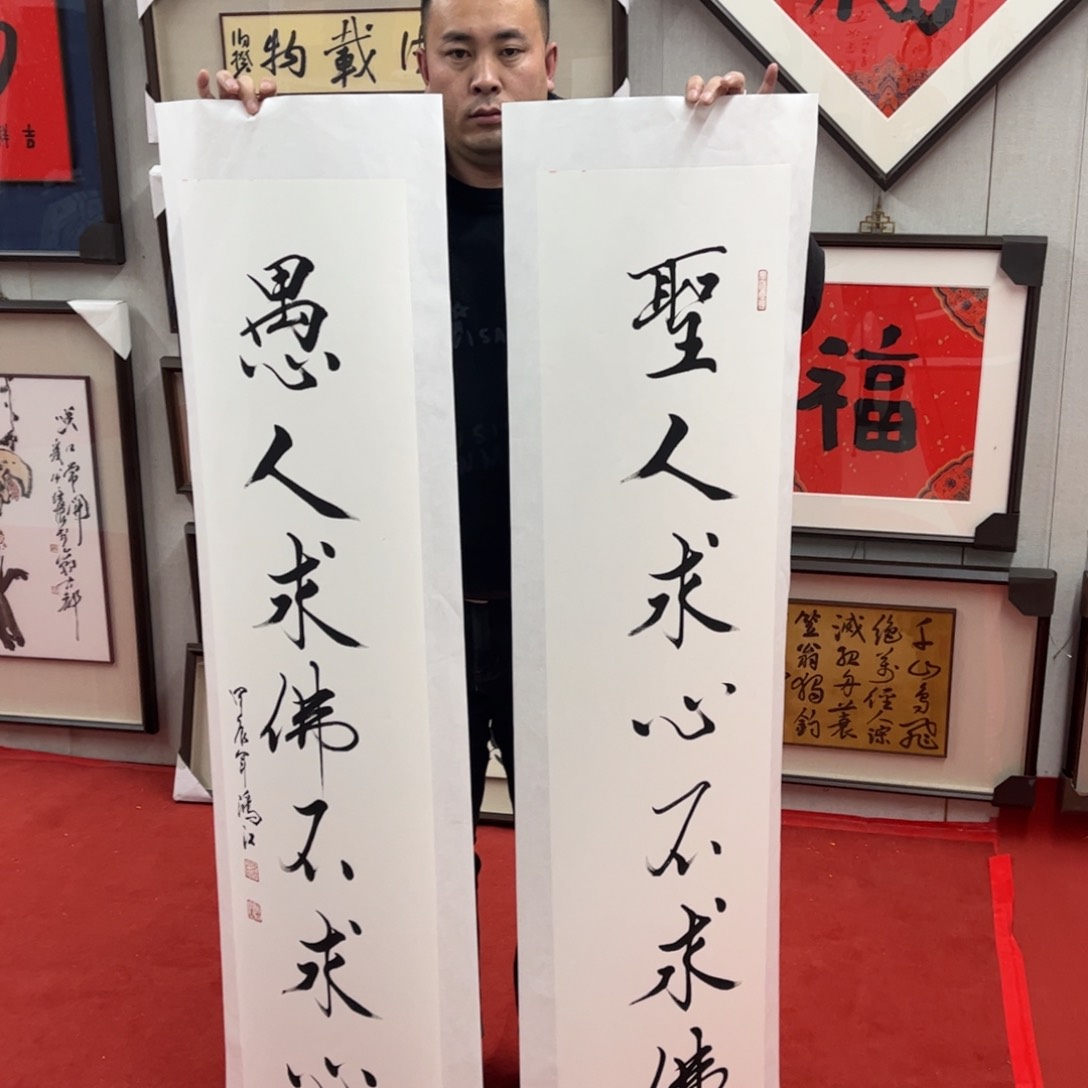 聖人求心不求佛
愚人求佛不求心
甲辰年鴻江
載物
福
千山鳥飛
絕萬徑人踪
滅孤舟蓑
笠翁獨釣
吉